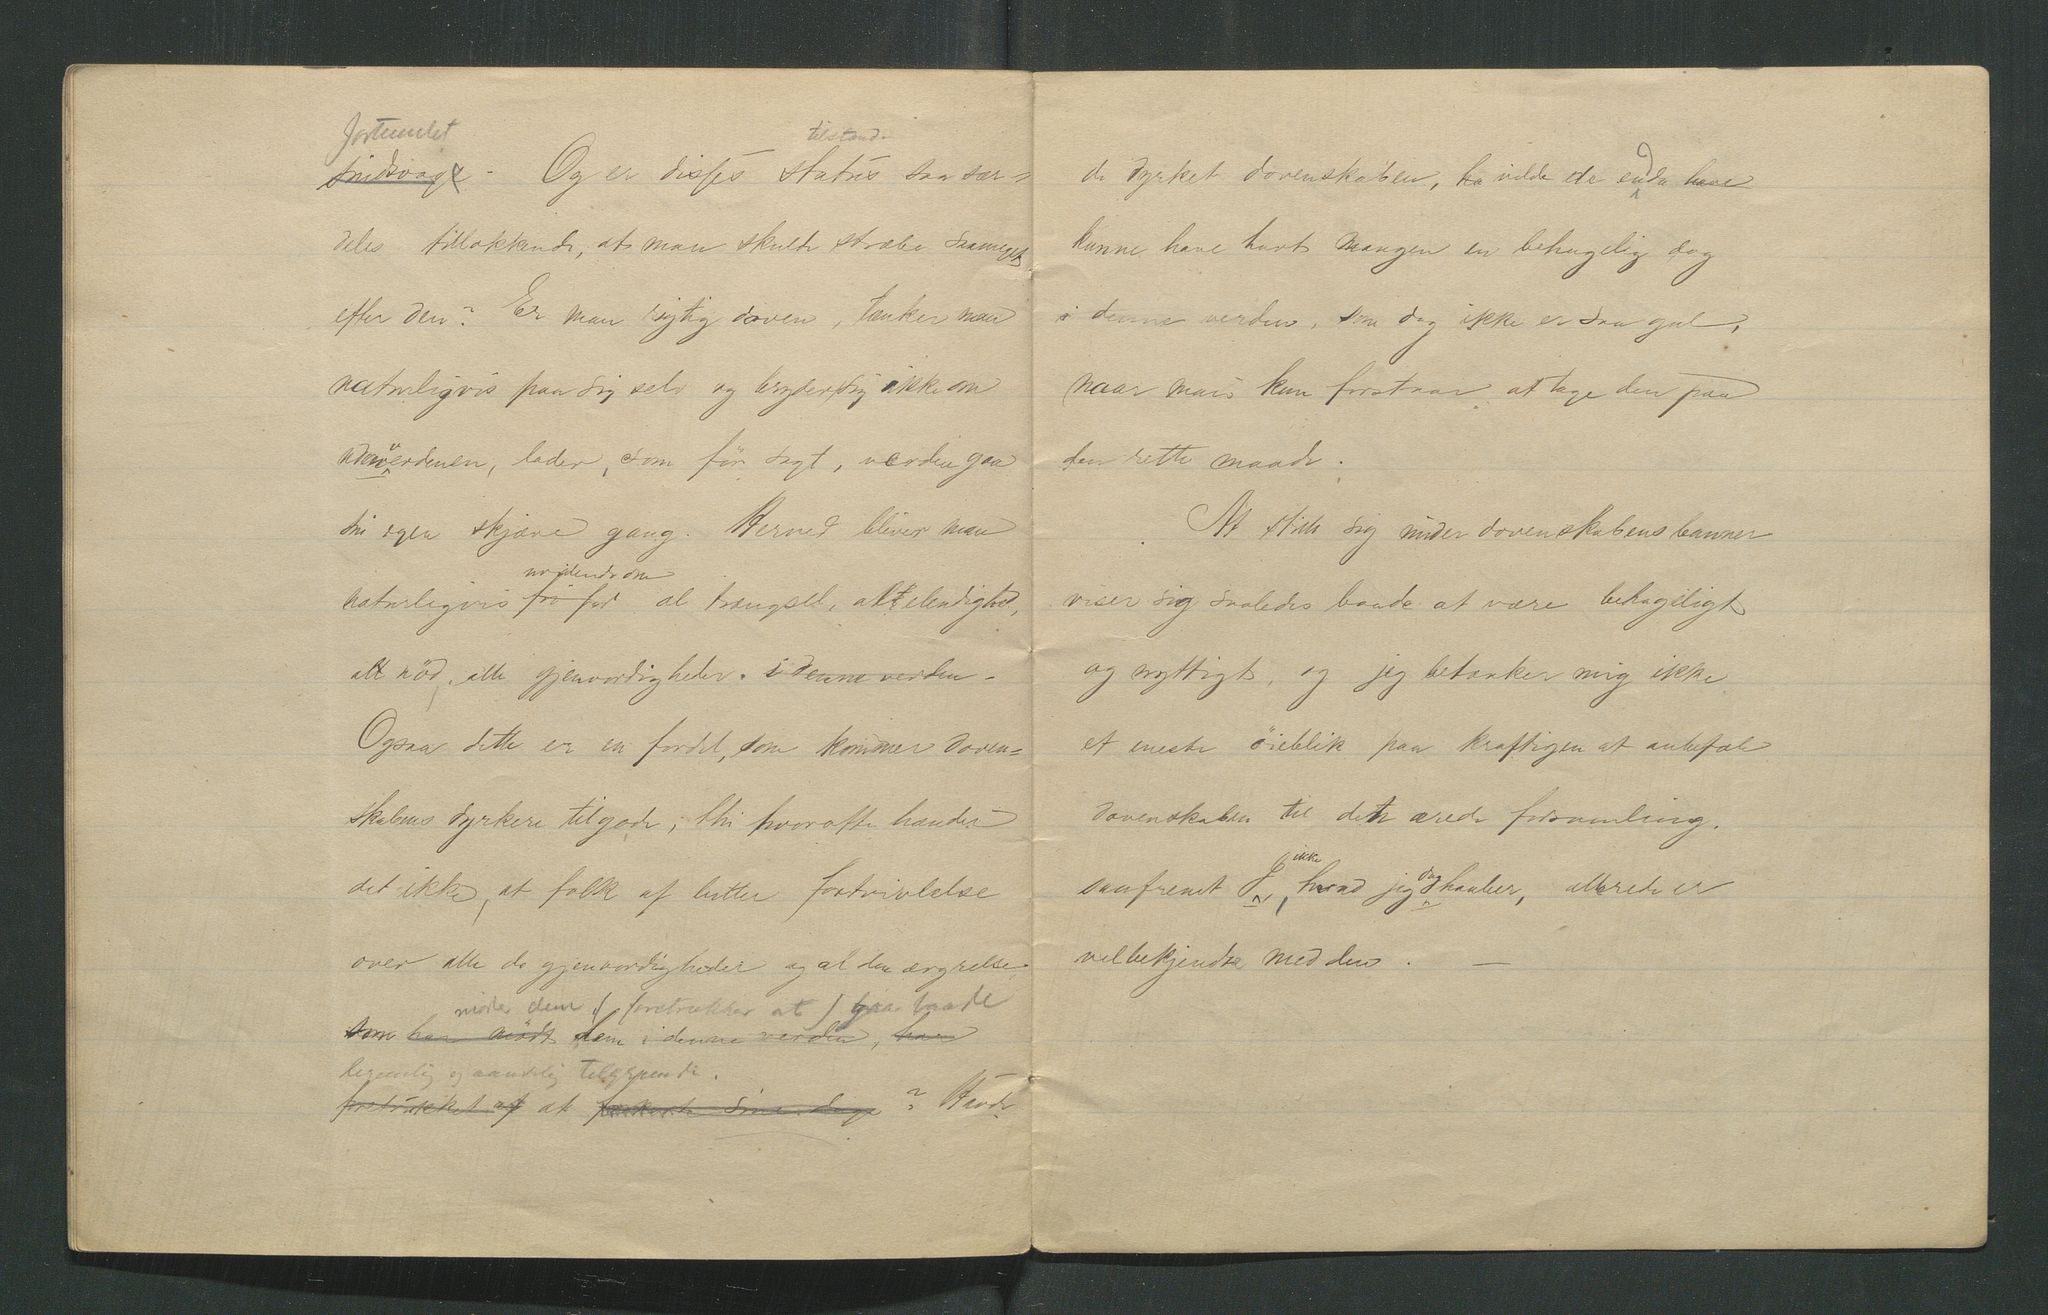 fortumlet
sindsvage - Og er disses status saa sær=
tilstand.
deles tillokkende, at man skulde stræbe saameget
efter den? Er man rigtig doven, tænker man
naturligvis paa sig selv og bryder sig ikke om
udenverdenen, lader, som før sagt, verden gaa
sin egen skjæve gang. Herved bliver man
uvidende om
naturligvis fri for al trængsel, al elendighed,
al nöd, alle gjenvordigheder. i denne verden -
Ogsaa dette er en fordel, som kommer doven=
skabens dyrkere tilgode; thi hvor ofte hænder
det ikke, at folk af bitter fortvivlelse
over alle de gjenvordigheder og al den ærgrelse
møder dem ( foretrækker at ) gaa baade
som har mödt dem i denne verden, har
legemlig og aandelig tilgrunde.
foretrukket af at forkorte sine dage? Havde
de dyrket dovenskaben, ha vilde de enda have
kunne have havt mangen en behagelig dag
i denne verden, som dog ikke er saa gal,
naar man kun forstaar at tage den paa
den rette maade.
At stille sig under dovenskabens banner
viser sig saaledes baade at være behageligt
og nyttigt, og jeg betænker mig ikke
et eneste öieblik paa kraftigen at anbefale
dovenskaben til den ærede forsamling,
saafremt I ikke, hvad jeg dog haaber, allerede er
velbekjendte med den. -